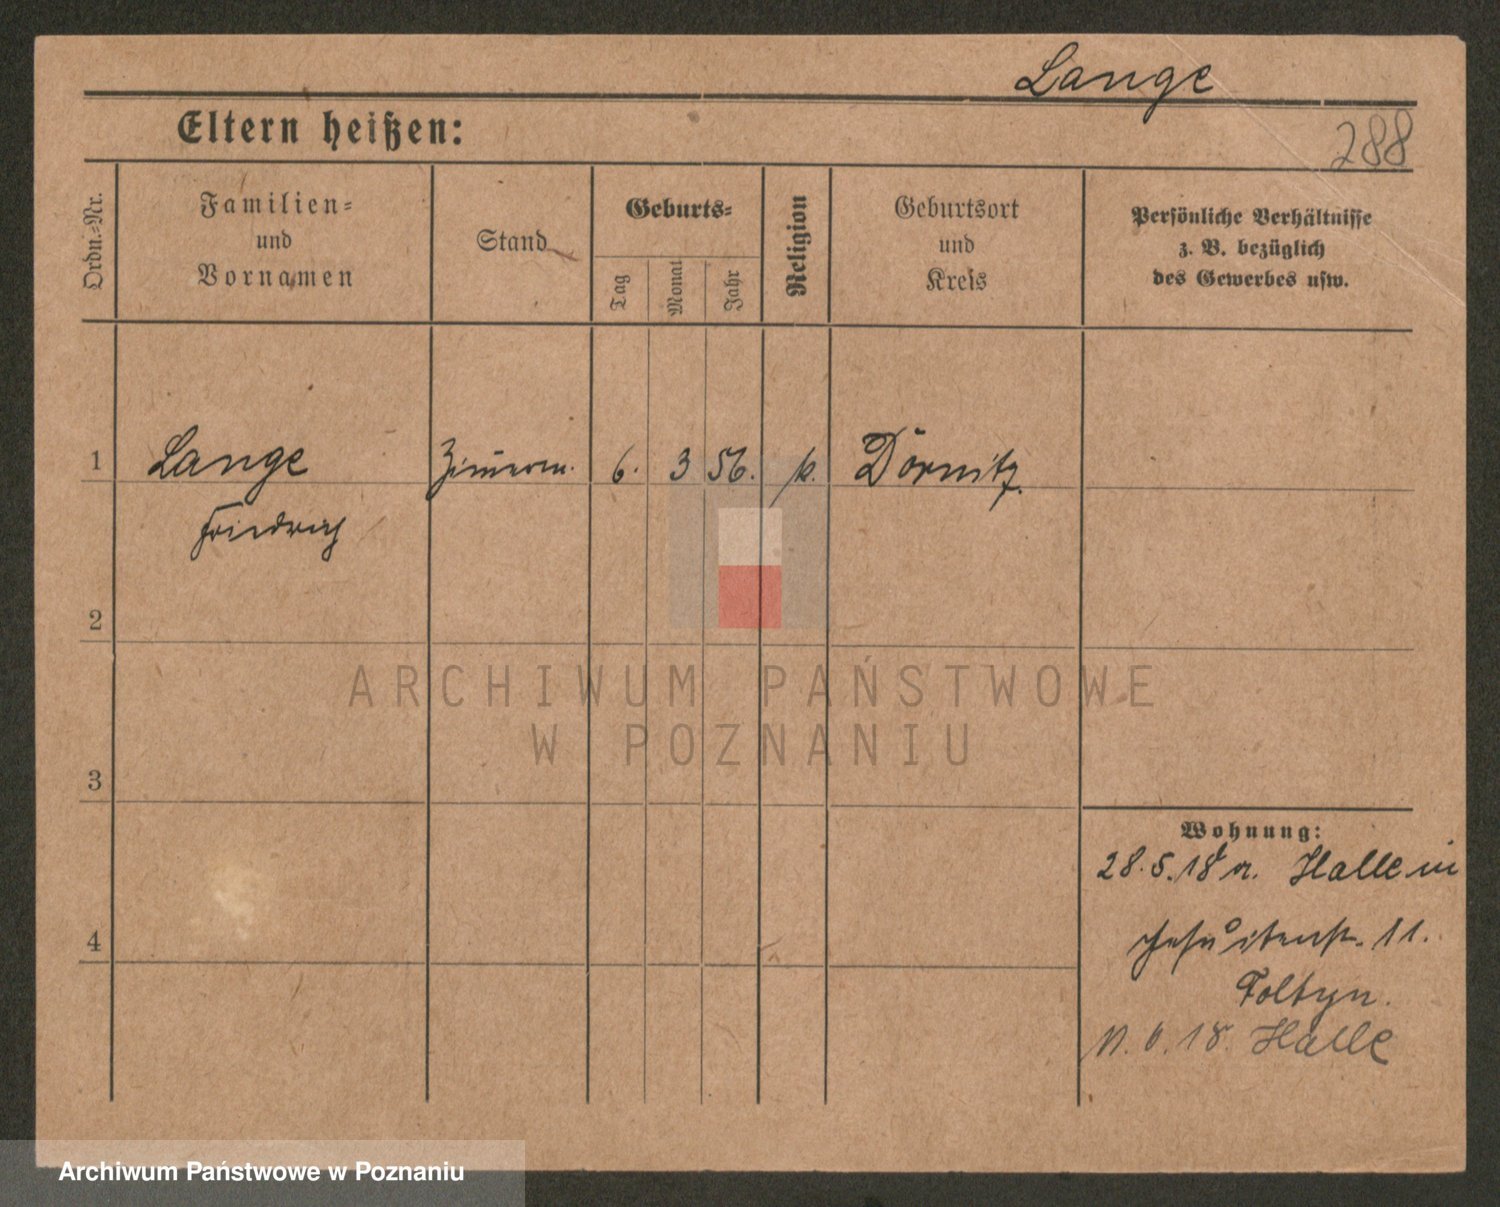 Lange
Eltern heißen:
288
Ordn.-Nr.
Familien-
und
Vornamen
Stand
Geburts-
Tag
Monat
Jahr
Religion
Geburtsort
und
Kreis
Persönliche Verhältnisse
z. B. bezüglich
des Gewerbes usw.
1 Lange Zimerm. 6. 3 56. k. Dörnitz.
Friedrich
2
3
4
ARCHIWUM PAŃSTWOWE
W POZNANIU
Wohnung:
28.5.18 a. Halle in
Jesuitenstr. 11.
Foltyn.
18. Halle
Archiwum Państwowe w Poznaniu